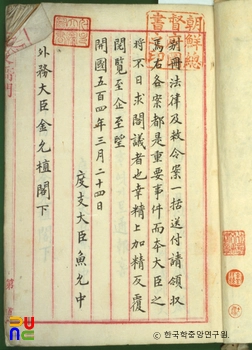 別冊法律及敕令案一括送付請領収
焉右各案都是重要事件而本大臣之
將不日求閣議者也幸精上加精反覆
閱覽至企至望
開國五百四年三月二十四日
度支大臣魚允中
外務大臣金允植閣下
朝鮮總
督府圖
書之印
한국학중앙연구원